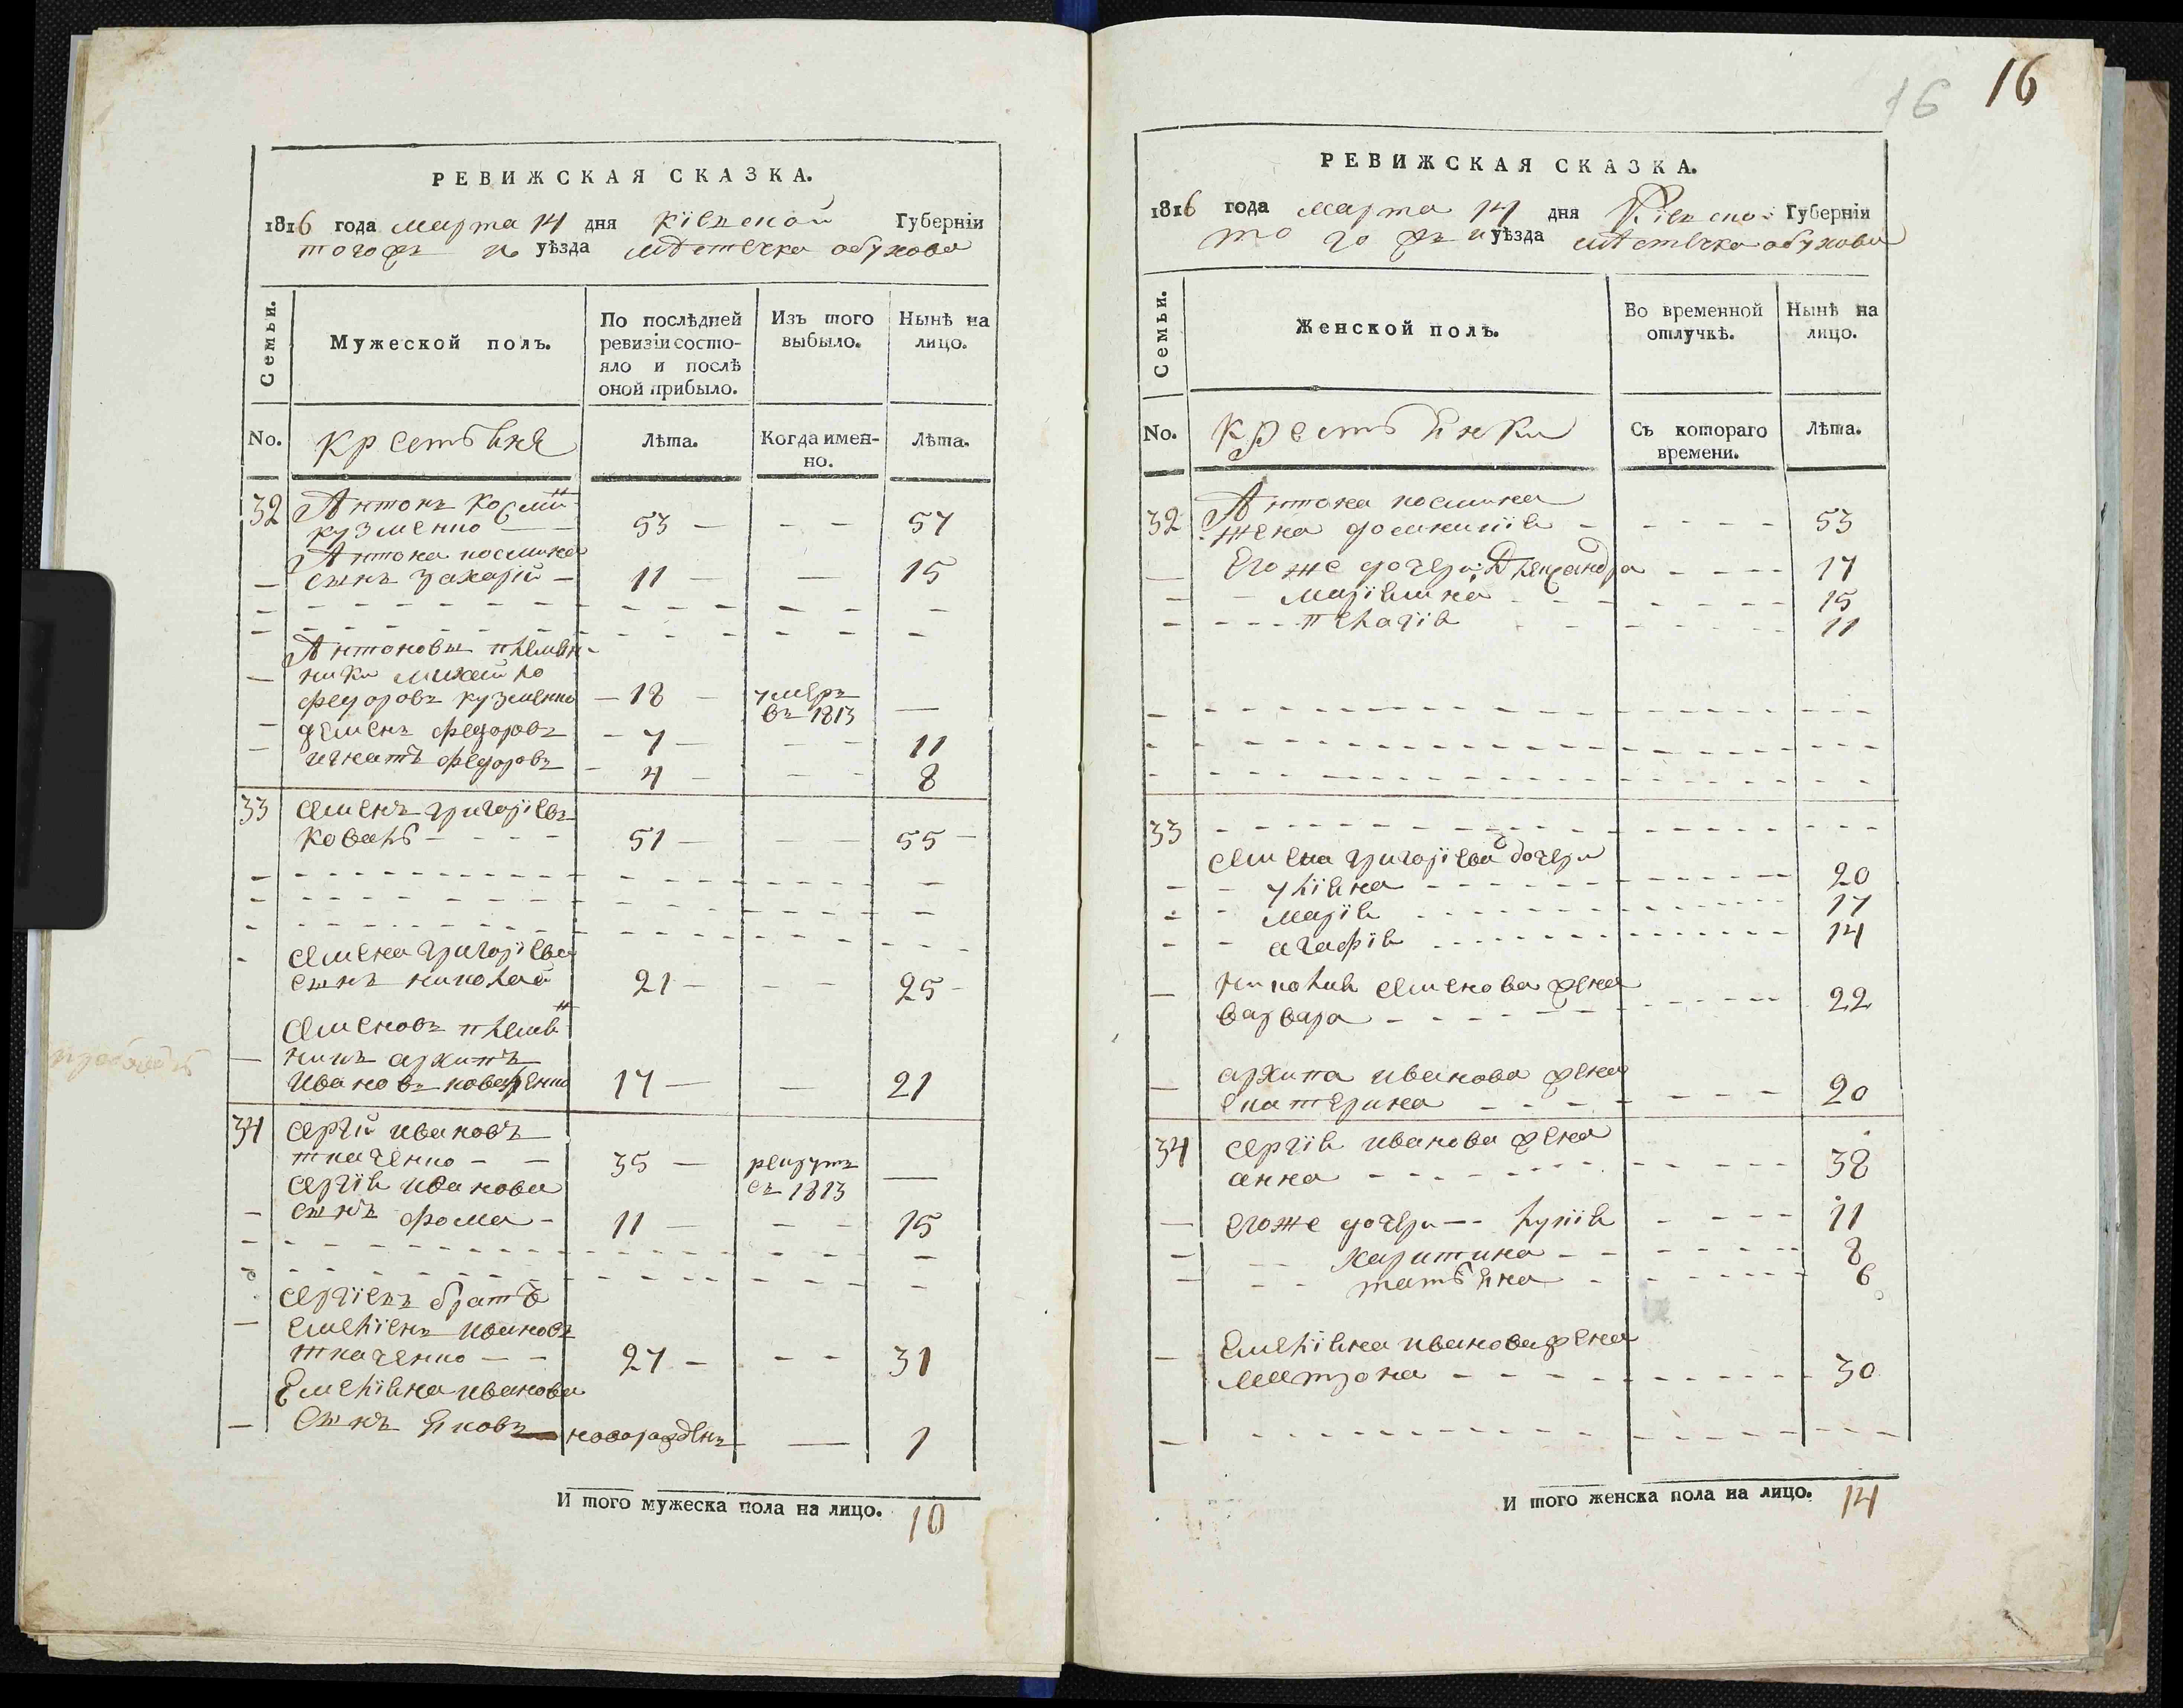 16
16
РЕВИЖСКАЯ СКАЗКА.
1816 года марта 14 дня Кіевской Губерніи
тогожъ и уѣзда мѣстечка обухова
Семьи.
Мужеской полъ.
По послѣдней ревизіи состо-
яло и послѣ
оной прибыло.
Изъ того выбыло.
Нынѣ на лицо.
No.
крестьяня
Лѣта.
Когда имен-
но.
Лѣта.
32 Антонъ Космин
кузменко — 53 — - - 57
Антона космина
— сынъ захарій — 11 — — 15
Антоновы племян-
— ники михайло
федоровъ кузменко — 18 — умеръ
въ 1813 —
— демен федоровъ — 7 — - - 11
— игнатъ федоровъ — 4 — - - 8
33 семенъ григоріевъ
коваль - - - 51 — — 55 —
- семена григоріева
сынъ николай 21 — - - 25 -
семеновъ племян
— никъ архипъ
ивановъ коваленко 17 — — 21
34 сергій ивановъ
ткаченко - - 35 — рекрутъ
съ 1813 —
сергія иванова
— сынъ фома - 11 — - - 15
сергіевъ братъ
— емеліянъ ивановъ
ткаченко - - 27 - - - 31
Емеліяна иванова
— сынъ яковъ новорожденъ — 1
И того мужеска пола на лицо. 10
РЕВИЖСКАЯ СКАЗКА.
1816 года марта 14 дня Кіевской Губерніи
тогожъ и уѣзда мѣстечка обухова
Семьи.
Женской полъ.
Во временной
отлучкѣ.
Нынѣ на
лицо.
No.
крестьянки
Съ котораго
времени.
Лѣта.
32 Антона космина
жена доминикія - - - - - 53
— Егоже дочери: Александра - - - - 17
— - маріянна - - - 15
- - - - пелагія - - - 11
33
семена григоріева дочери
- - уліяна - - - 20
- - марія - - - 17
- - агафія - - - 14
— николая семенова жена
варвара - - - 22
— архипа иванова жена
екатерина - - - 20
34 сергія иванова жена
анна - - - 38
— егоже дочери — лукія - - - 11
— - - харитина - - - 8
— - - татьяна - - - 6
— Емеліяна иванова жена
матрона - - - 30
И того женска пола на лицо. 14